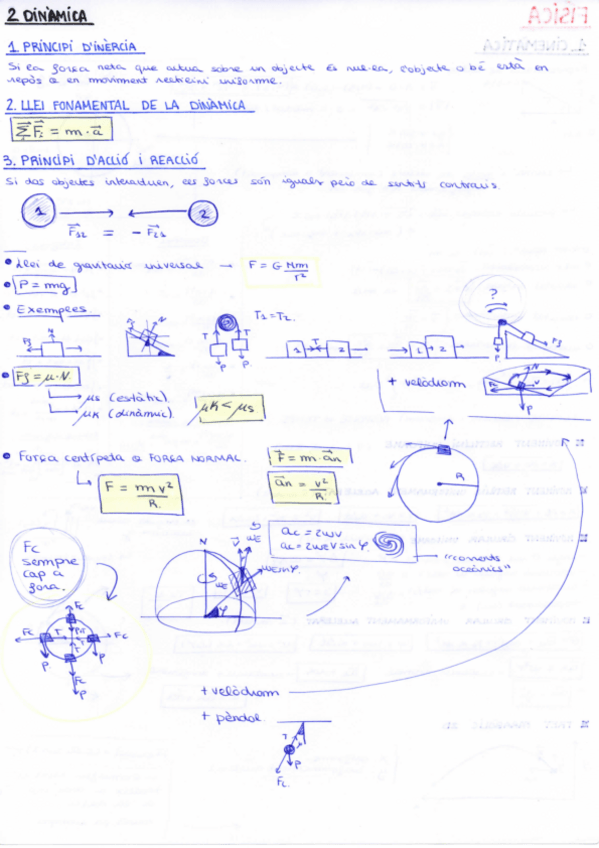 2 DINÀMICA
FÍSICA
1. CINEMÀTICA
1. PRINCIPI D'INÈRCIA
Si la força neta que actua sobre un objecte és nul·la, l'objecte o bé està en
repòs o en moviment rectilini uniforme.
2. LLEI FONAMENTAL DE LA DINÀMICA
ΣF⃗i = m · a⃗
3. PRINCIPI D'ACCIÓ I REACCIÓ
Si dos objectes interactuen, les forces són iguals però de sentits contraris.
1 2
F⃗12 = - F⃗21
• Llei de gravitació universal → F = G Mm/r²
• P = mg
• Exemples.
T1 = T2
?
N
Ff
T T
P P
1 T 2
1 2
• Ff = μ · N
μs (estàtic)
μk (dinàmic)
μk < μs
+ velòdrom
• Força centrípeta o FORÇA NORMAL.
F⃗ = m · a⃗n
F = m v²/R
a⃗n = v²/R
R
Fc
sempre
cap a
fora.
ac = 2ωv
ac = 2ωE v sin φ
"corrents
oceànics"
N
ωE
ωE sin φ
φ
Fc
T
P
+ velòdrom
+ pèndol
T
P
Fc